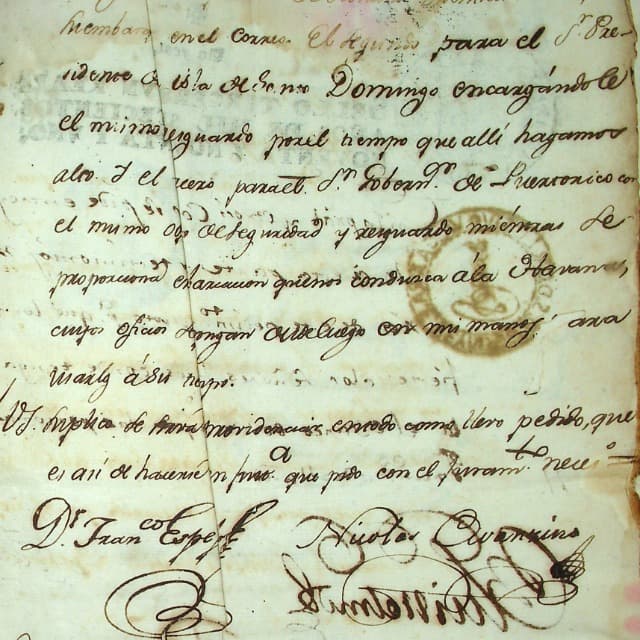 en el Correo. El segundo para el S.r Pre-
sidente de la Isla de Santo Domingo encargándole
el mismo resguardo por el tiempo que allí hagamos
alto. Y el para el S.r Gobern.or de Puertorico con
el mismo de seguridad y resguardo mientras se
proporciona que nos conduzca á la Havana,
cuyos oficios pongan desde luego en mis manos para
usarlos á su tpo.
A VS. suplico se sirva en todo como llevo pedido, que
es así de hacerse en just.a que pido con el juram.to neces.o
D.r Fran.co Espejo Nicolas